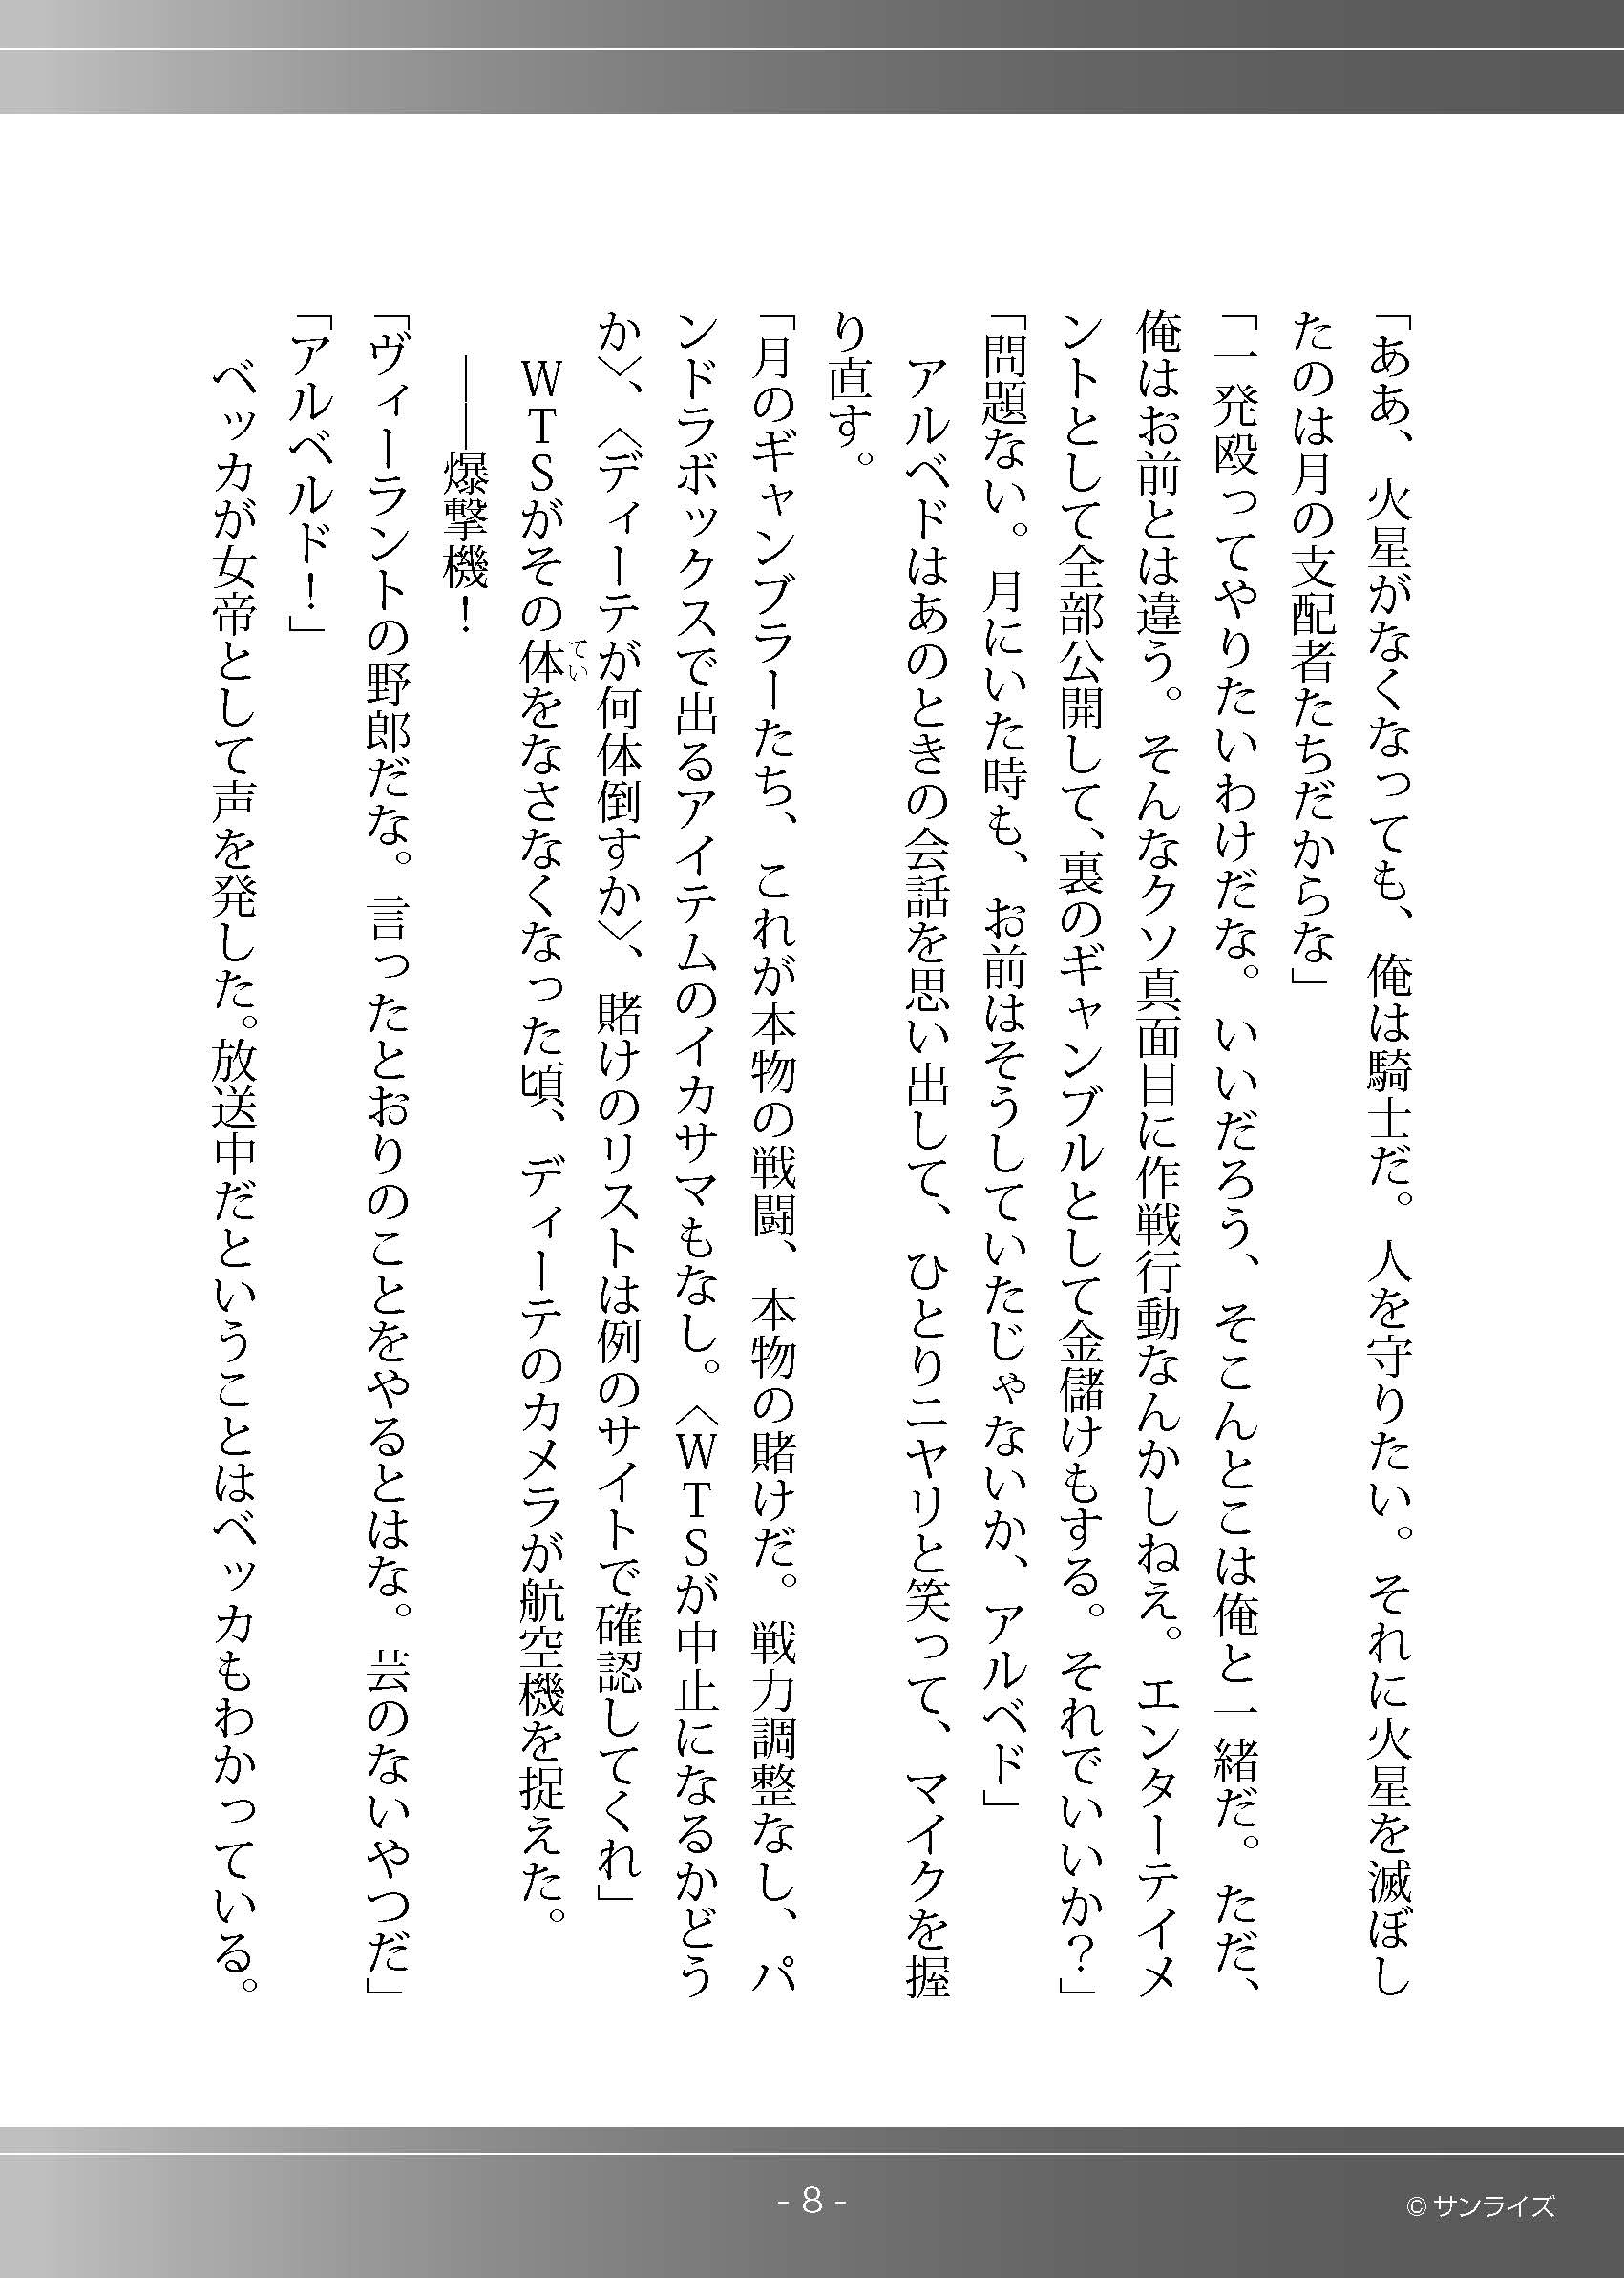 「ああ、火星がなくなっても、俺は騎士だ。人を守りたい。それに火星を滅ぼし
たのは月の支配者たちだからな」
「一発殴ってやりたいわけだな。いいだろう、そこんとこは俺と一緒だ。ただ、
俺はお前とは違う。そんなクソ真面目に作戦行動なんかしねえ。エンターテイメ
ントとして全部公開して、裏のギャンブルとして金儲けもする。それでいいか？」
「問題ない。月にいた時も、お前はそうしていたじゃないか、アルベド」
　アルベドはあのときの会話を思い出して、ひとりニヤリと笑って、マイクを握
り直す。
「月のギャンブラーたち、これが本物の戦闘、本物の賭けだ。戦力調整なし、パ
ンドラボックスで出るアイテムのイカサマもなし。〈ＷＴＳが中止になるかどう
か〉、〈ディーテが何体倒すか〉、賭けのリストは例のサイトで確認してくれ」
　ＷＴＳがその体をなさなくなった頃、ディーテのカメラが航空機を捉えた。
てい
　――爆撃機！
「ヴィーラントの野郎だな。言ったとおりのことをやるとはな。芸のないやつだ」
「アルベルド！」
　ベッカが女帝として声を発した。放送中だということはベッカもわかっている。
- 8 -
© サンライズ